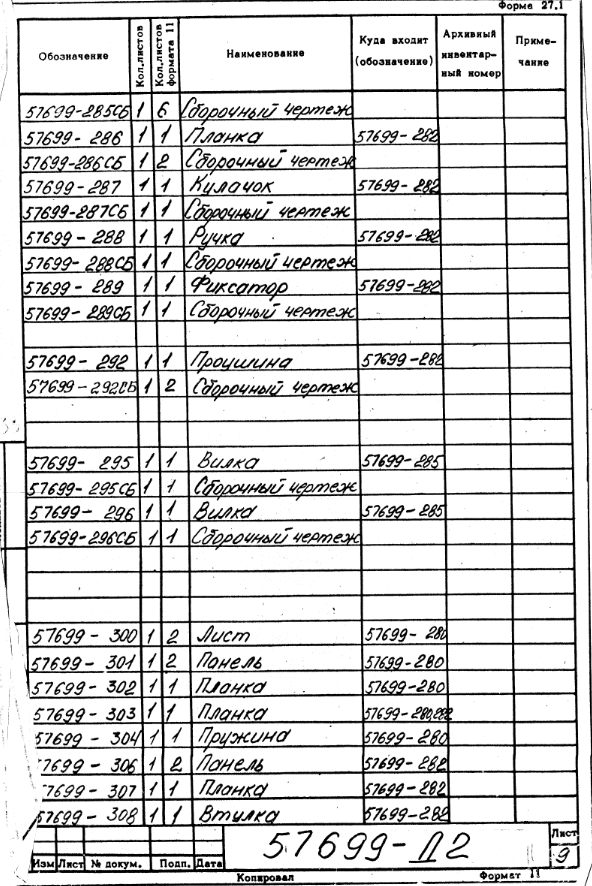 Форма 27.1
Обозначение Кол.листов Кол.листов формата 11 Наименование Куда входит (обозначение) Архивный инвентарный номер Примечание
57699-285СБ 1 6 Сборочный чертеж
57699-286 1 1 Планка 57699-282
57699-286СБ 1 2 Сборочный чертеж
57699-287 1 1 Кулачок 57699-282
57699-287СБ 1 1 Сборочный чертеж
57699-288 1 1 Ручка 57699-282
57699-288СБ 1 1 Сборочный чертеж
57699-289 1 1 Фиксатор 57699-282
57699-289СБ 1 1 Сборочный чертеж
57699-292 1 1 Проушина 57699-282
57699-292СБ 1 2 Сборочный чертеж
57699-295 1 1 Вилка 57699-285
57699-295СБ 1 1 Сборочный чертеж
57699-296 1 1 Вилка 57699-285
57699-296СБ 1 1 Сборочный чертеж
57699-300 1 2 Лист 57699-280
57699-301 1 2 Панель 57699-280
57699-302 1 1 Планка 57699-280
57699-303 1 1 Планка 57699-280,282
57699-304 1 1 Пружина 57699-280
57699-306 1 2 Панель 57699-282
57699-307 1 1 Планка 57699-282
57699-308 1 1 Втулка 57699-282
57699-Д2
Лист
9
Изм Лист № докум. Подп. Дата
Копировал Формат 11